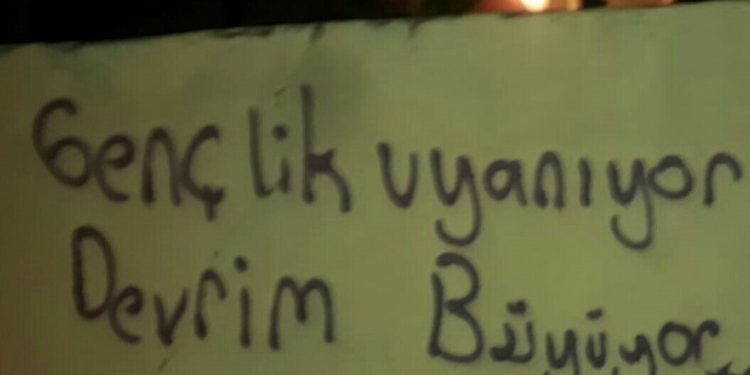 Gençlik uyanıyor
Devrim Büyüyor